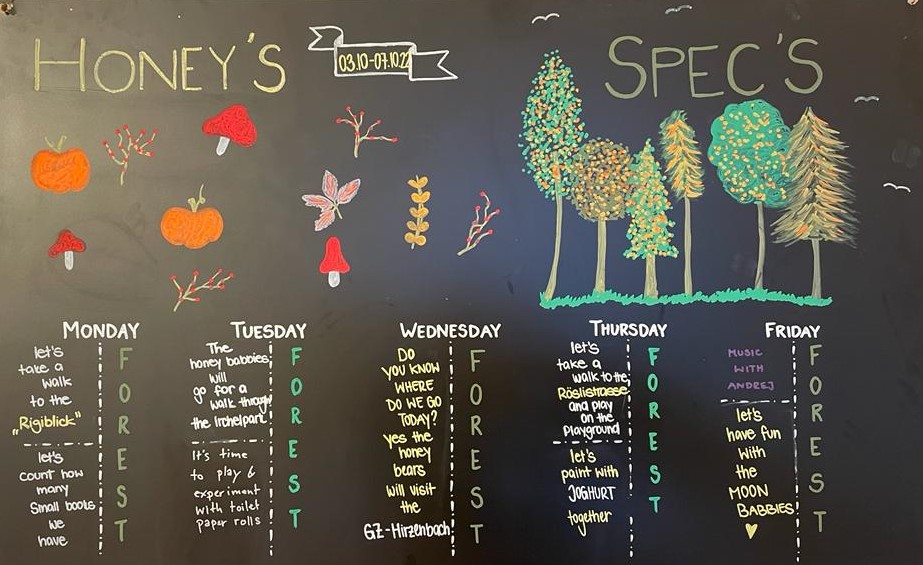 HONEY'S
03.10-07.10.22
SPEC'S
MONDAY
let's
take a
walk
to the
„Rigiblick"
let's
count how
many
Small boots
we
have
FOREST
TUESDAY
The
honey babbies
will
go for a
walk through
the Irchelpark
It's time
to play &
experiment
with toilet
paper rolls
FOREST
WEDNESDAY
DO
YOU KNOW
WHERE
DO WE GO
TODAY?
yes the
honey
bears
will visit
the
GZ-Hirzenbach
FOREST
THURSDAY
let's
take a
walk to the
Röslistrasse
and play
on the
playground
let's
paint with
JOGHURT
together
FOREST
FRIDAY
MUSIC
WITH
ANDREJ
let's
have fun
with
the
MOON
BABBIES
FOREST